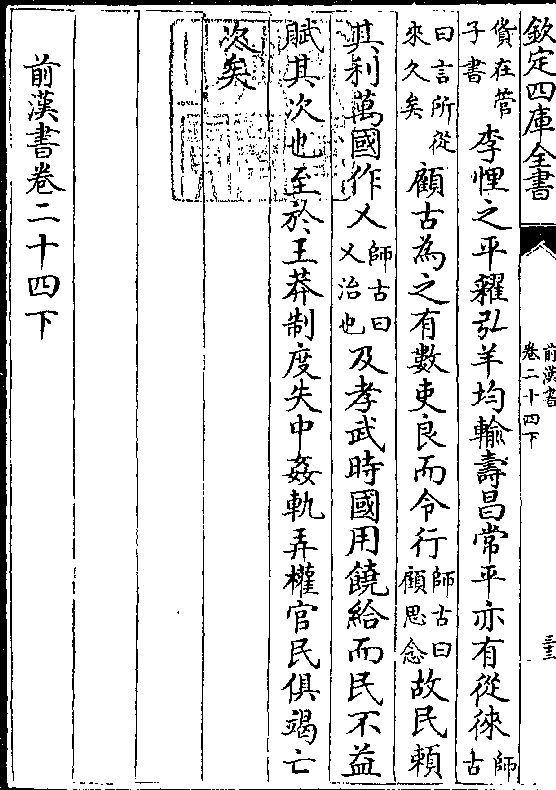 欽定四庫全書
前漢書
卷二十四下
貨在管子書李悝之平糴弘羊均輸壽昌常平亦有從徠師古
曰言所從來久矣顧古為之有數吏良而令行師古曰顧思念故民賴
其利萬國作乂師古曰乂治也及孝武時國用饒給而民不益
賦其次也至於王莽制度失中姦軌弄權官民俱竭亡
次矣
前漢書卷二十四下